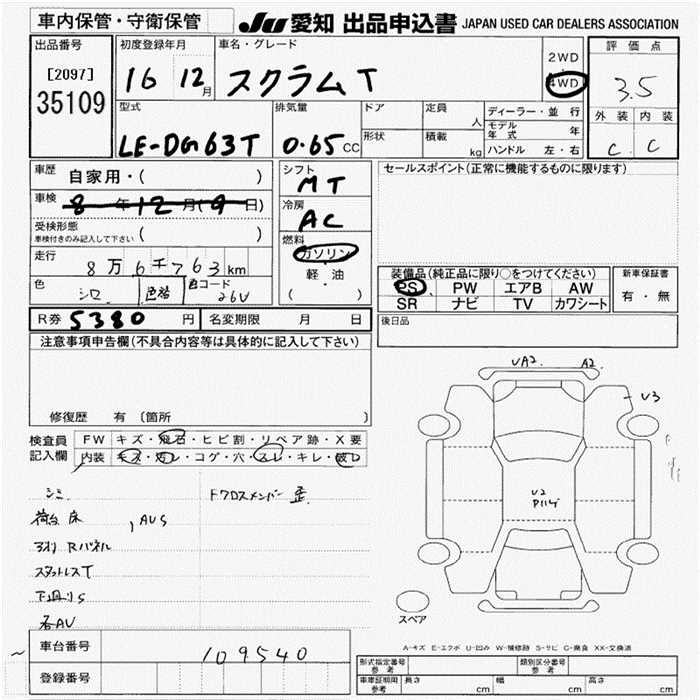 車内保管・守衛保管
JU 愛知 出品申込書 JAPAN USED CAR DEALERS ASSOCIATION
出品番号
[2097]
35109
初度登録年月
16 12月
車名・グレード
スクラム T
2WD
4WD
評価点
3.5
外装 内装
C C
型式
LE-DG63T
排気量
0.65 CC
ドア
形状
定員
人
積載
kg
ディーラー・並行
モデル年式 年
ハンドル 左・右
車歴
自家用・( )
車検
8年12月(9日)
受検形態
車検付きのみ記入して下さい ( )
走行
8万6千763km
色
シロ
色替
色コード
26U
シフト
MT
冷房
AC
燃料
ガソリン
軽・油
( ・ )
セールスポイント(正常に機能するものに限ります)
装備品(純正品に限り○をつけてください)
PS PW エアB AW
SR ナビ TV カワシート
新車保証書
有・無
後日品
R券 5380 円 名変期限 月 日
注意事項申告欄(不具合内容等は具体的に記入して下さい)
修復歴 有 〔箇所 〕
検査員記入欄
FW キズ・飛石・ヒビ割・リペア跡・X要
内装 キズ・汚レ・コゲ・穴・スレ・キレ・破レ
シミ
荷台床 , AUS
アオリ Rパネル
スタットレスT
下廻りS
各AU
Fクロスメンバー 歪
UA2. A2.
U3
U2
スペア
A-キズ E-エクボ U-凹み W-補修跡 S-サビ C-腐食 XX-交換済
車台番号 109540
登録番号
形式指定番号 参考
類別区分番号 参考
車庫証明用 参考
長さ cm 幅 cm 高さ cm